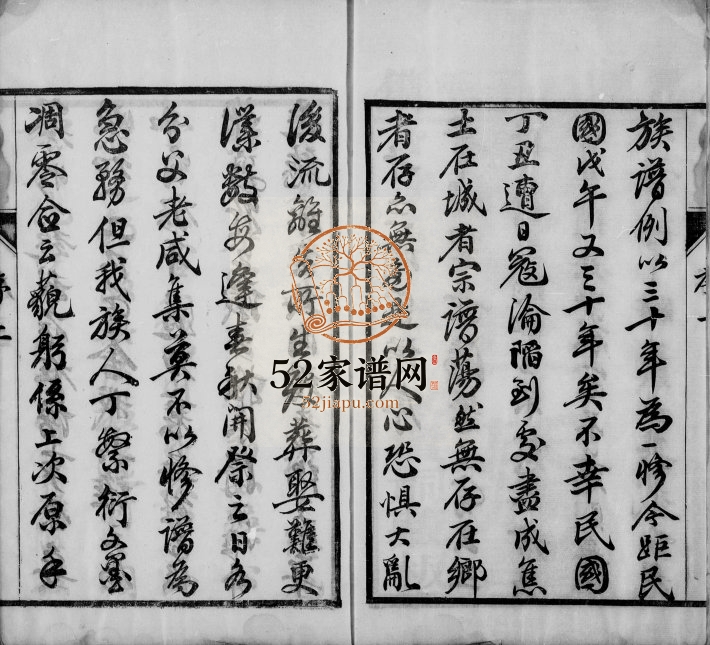 族譜例以三十年為一修今距民
國戊午又三十年矣不幸民國
丁丑遭日寇淪陷到處盡成焦
土在城者宗譜蕩然無存在鄉
者存亦無是以人心恐懼大亂
後流離所生葬娶難更
僕數每逢春秋開祭之日各
分父老咸集莫不以修譜為
急務但我族人丁繁衍文墨
凋零僉云藐躬係上次原手
52家谱网
52jiapu.com